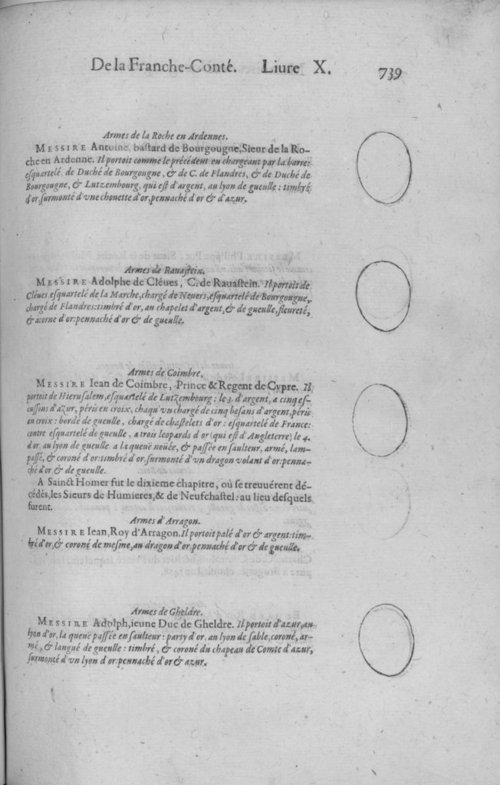 De la Franche-Conté. Liure X. 739
Armes de la Roche en Ardennes.
MESSIRE Antoine, bastard de Bourgougne, Sieur de la Ro-
che en Ardenne. Il portoit comme le précédent en chargeant par la barre:
esquartelé de Duché de Bourgougne, & de C. de Flandres, & de Duché de
Bourgougne, & Lutzembourg, qui est d'argent, au lyon de gueulle: timbré
d'or, surmonté d'vne chouette d'or, pennaché d'or & d'azur.
Armes de Rauastein.
MESSIRE Adolphe de Cléues, C. de Rauastein. Il portoit de
Cléues esquartelé de la Marche, chargé de Neuers, esquartelé de Bourgougne,
chargé de Flandres: timbré d'or, au chapelet d'argent, & de gueulle, fleureté,
& acorne d'or: pennaché d'or & de gueulle.
Armes de Coimbre.
MESSIRE Iean de Coimbre, Prince & Regent de Cypre. Il
portoit de Hierusalem, esquartelé de Lutzembourg: le 3. d'argent, a cinq es-
cussins d'azur, péris en croix, chaqu'vn chargé de cinq besans d'argent, péris
en croix: bordé de gueulle, chargé de chastelets d'or: esquartelé de France:
contre esquartelé de gueulle, a trois leopards d'or (qui est d'Angleterre) le 4.
d'or au lyon de gueulle a la queuë nouée, & passée en saulteur, armé, lam-
passé, & coroné d'or: timbré d'or, surmonté d'vn dragon volant d'or: penna-
ché d'or & de gueulle.
A Sainct Homer fut le dixieme chapitre, où se treuuérent dé-
cédés, les Sieurs de Humieres, & de Neufchastel: au lieu desquels
furent.
Armes d'Arragon.
MESSIRE Iean, Roy d'Arragon. Il portoit palé d'or & argent: tim-
bré d'or, & coroné de mesme, au dragon d'or: pennaché d'or & de gueulle.
Armes de Gheldre.
MESSIRE Adolph, ieune Duc de Gheldre. Il portoit d'azur, au
lyon d'or, la queuë passée en saulteur: party d'or, au lyon de sable, coroné, ar-
mé, & langué de gueulle: timbré, & coroné du chapeau de Comte d'azur,
surmonté d'vn lyon d'or: pennaché d'or & azur.